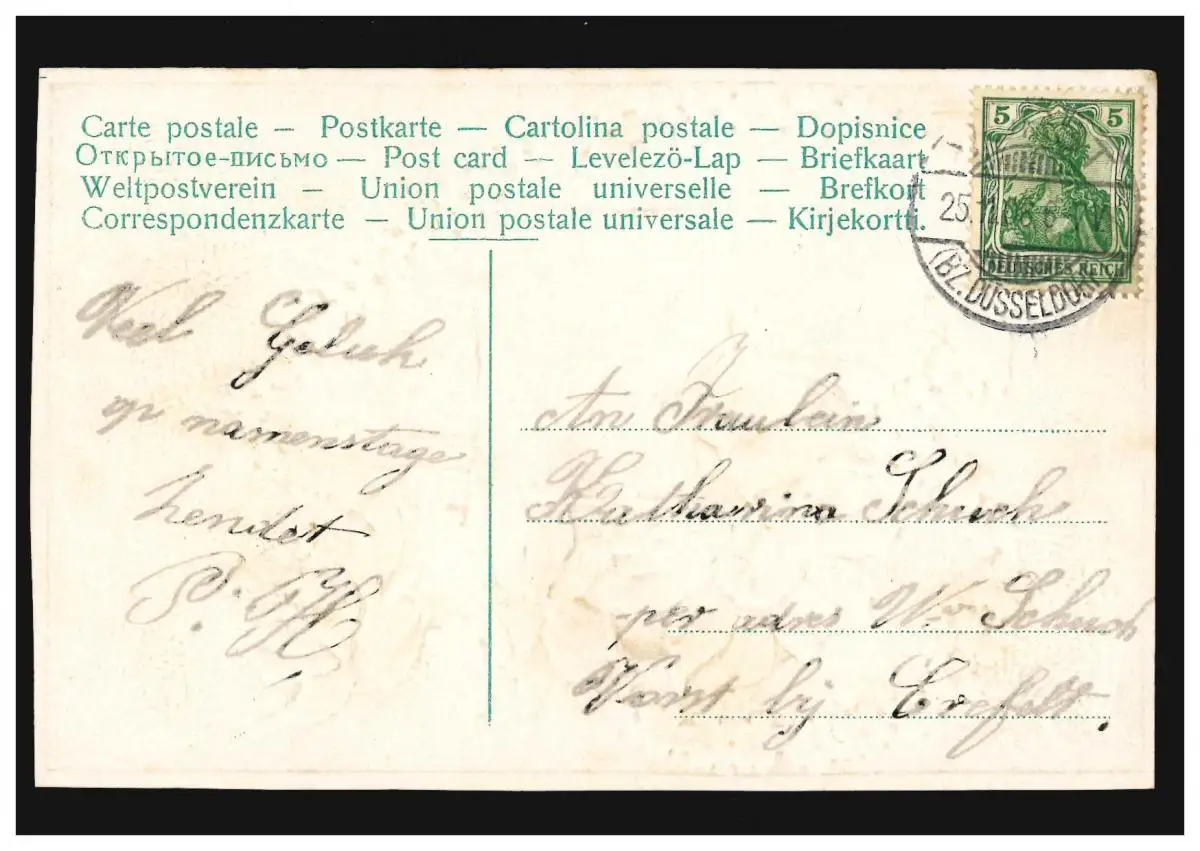 Carte postale — Postkarte — Cartolina postale — Dopisnice
Открытое-письмо — Post card — Levelezö-Lap — Briefkaart
Weltpostverein — Union postale universelle — Brefkort
Correspondenzkarte — Union postale universale — Kirjekortti.
5 5
DEUTSCHES REICH
25.
(BZ. DÜSSELDORF)
Veel Geluck
op namenstage
zendet
P. H.
An Fraulein
Katharina Schuch
per adres W. Schuch
Vorst bij Crefelt.